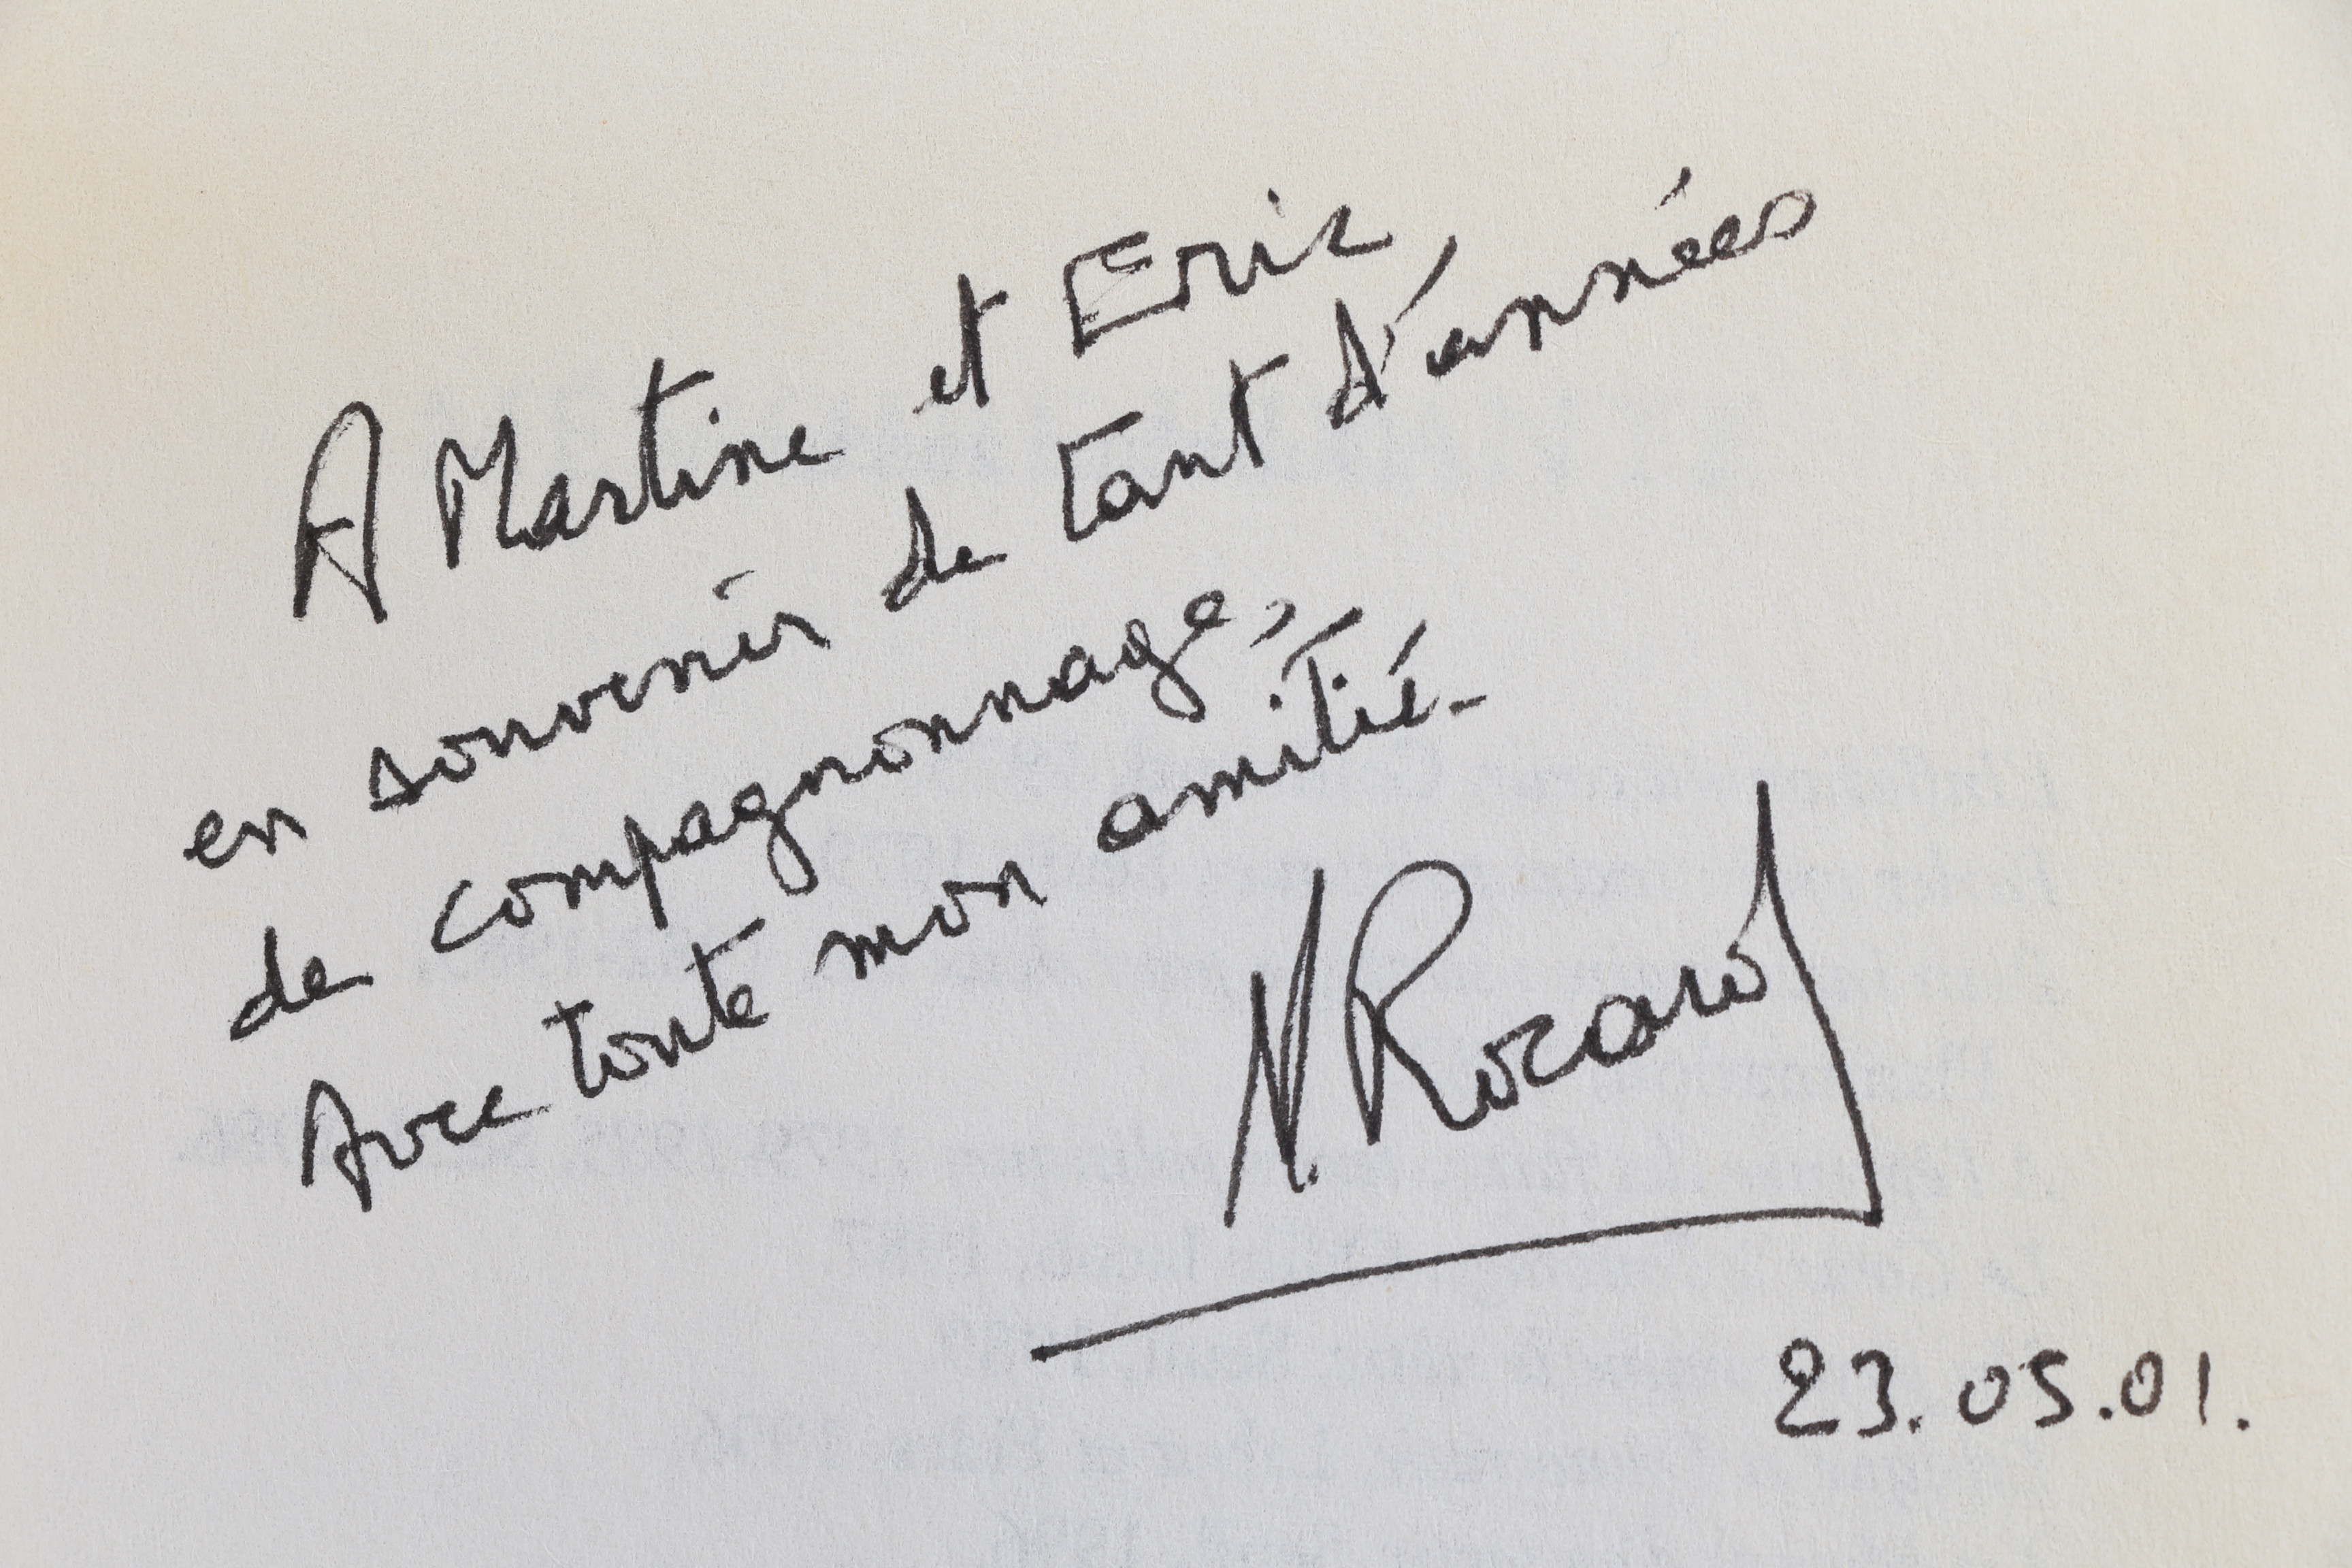 A Martine et Eric,
en souvenir de tant d'années
de compagnonnage,
Avec toute mon amitié.
M. Rocard
23.05.01.